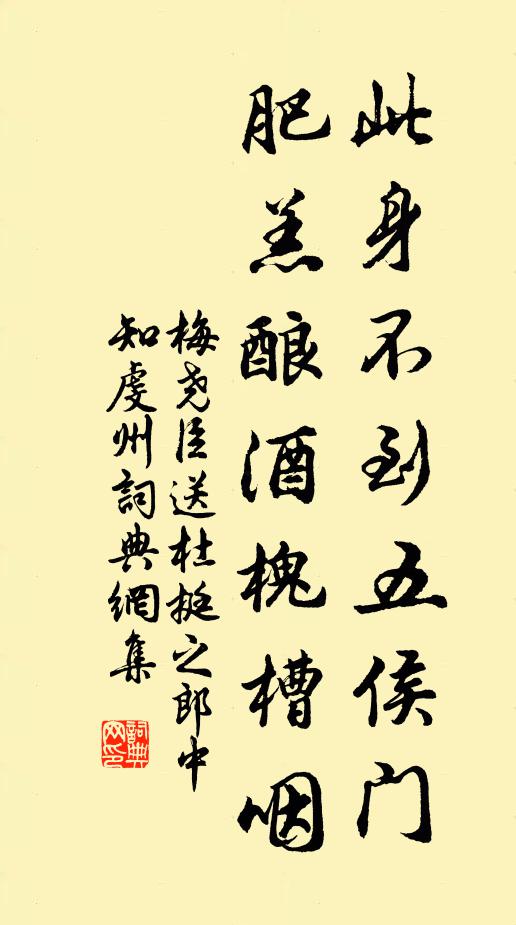 此身不到五侯门
肥羔酿酒槐槽咽
梅尧臣送杜挺之郎中
知虔州詞典網集
詞典网印